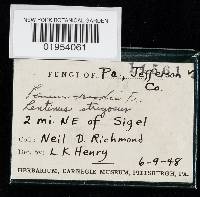 NEW YORK BOTANICAL GARDEN
01954061
FUNGI OF Pa., Jefferson
Co.
Lentinus strigosus
2 mi. NE of Sigel
Col: Neil D. Richmond
Det. by: L K Henry
6-9-48
HERBARIUM, CARNEGIE MUSEUM, PITTSBURGH, PA.